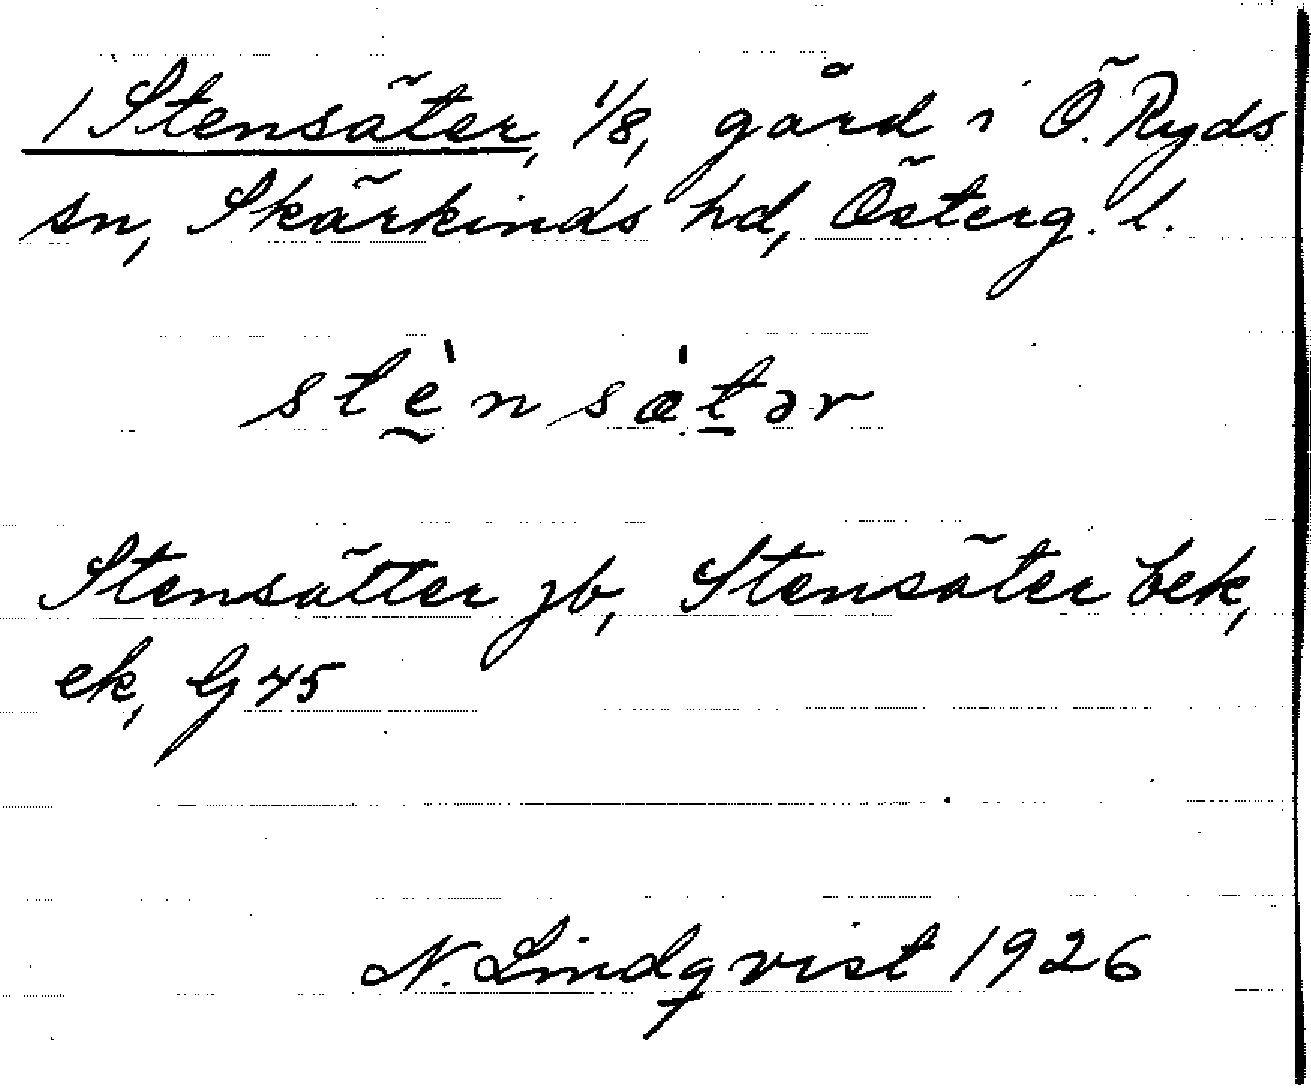 1 Stensäter, 1/8, gård i Ö. Ryds
sn, Skärkinds hd, Österg. l.
stḛ̀nsæ̀t̲ər
Stensätter jb, Stensäter bek,
ek, G 45
N. Lindqvist 1926